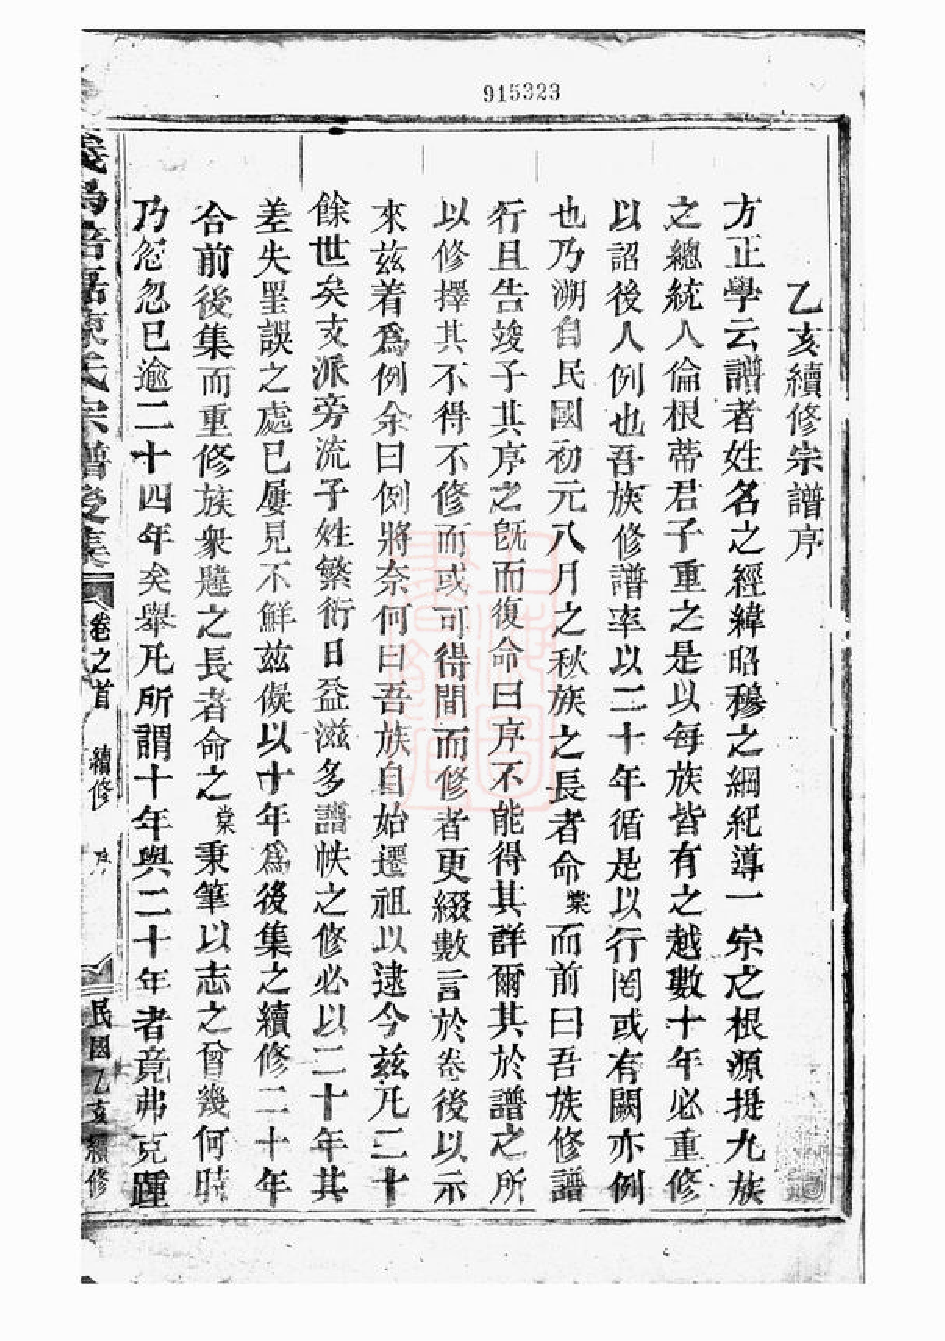 915323
乙亥續修宗譜序
方正學云譜者姓名之經緯昭穆之綱紀導一宗之根源提九族
之總統人倫根蒂君子重之是以每族皆有之越數十年必重修
以詔後人例也吾族修譜率以二十年循是以行罔或有闕亦例
也乃溯自民國初元八月之秋族之長者命棠而前曰吾族修譜
行且告竣子其序之旣而復命曰序不能得其詳爾其於譜之所
以修擇其不得不修而或可得間而修者更綴數言於卷後以示
來兹着爲例余曰例將奈何曰吾族自始遷祖以逮今兹凡二十
餘世矣支派旁流子姓繁衍日益滋多譜帙之修必以二十年其
差失罣誤之處已屢見不鮮兹儗以十年爲後集之續修二十年
合前後集而重修族衆韙之長者命之棠秉筆以志之曾幾何時
乃忽忽已逾二十四年矣舉凡所謂十年與二十年者竟弗克踵
義烏倍磊陳氏宗譜 集 卷之首 續修 序 民國乙亥續修